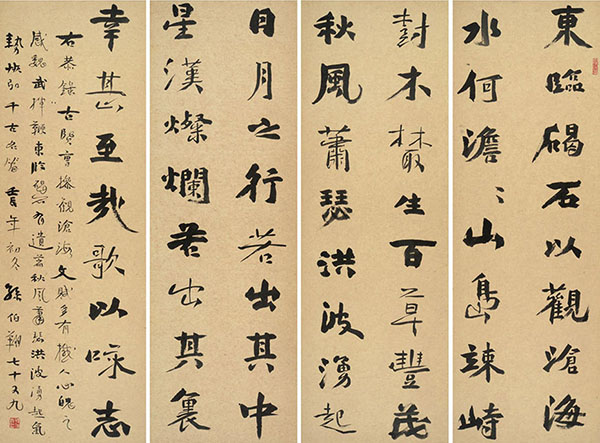 東臨碣石以觀滄海
水何澹〻山島竦峙
樹木叢生百草豐茂
秋風蕭瑟洪波湧起
日月之行若出其中
星漢燦爛若出其裏
幸甚至哉歌以咏志
右恭錄古賢曹操觀滄海文賦多有撼人心魄之
感魏武揮鞭東臨碣石有遺篇秋風蕭瑟洪波湧起氣
勢恢弘千古名篇 壬年初冬 孫伯翔七十又九